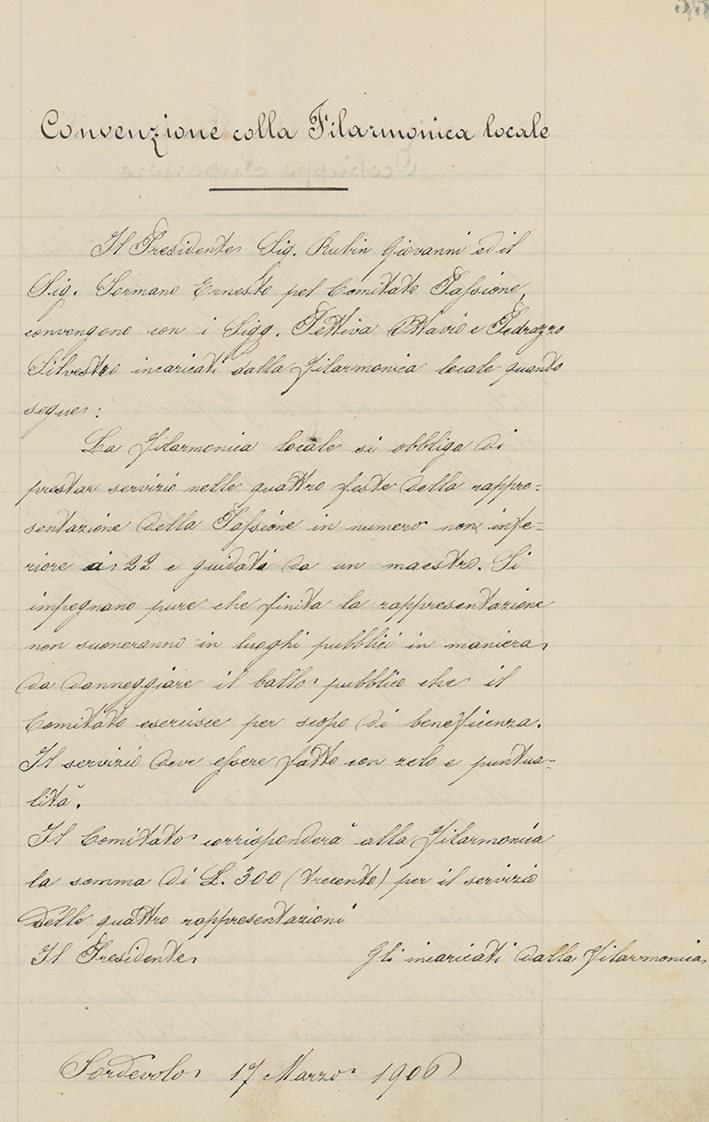 Convenzione colla Filarmonica locale
Il Presidente Sig. Rubin Giovanni ed il
Sig. Sormano Ernesto pel Comitato Passione,
convengono con i Sigg. Pettiva Ottavio e Pedrazzo
Silvestro incaricati dalla filarmonica locale quanto
segue:
La filarmonica locale si obbliga di
prestar servizio nelle quattro feste della rappre-
sentazione della Passione in numero non infe-
riore ai 22 e guidati da un maestro. Si
impegnano pure che finita la rappresentazione
non suoneranno in luoghi pubblici in maniera
da danneggiare il ballo pubblico che il
Comitato esercisce per scopo di beneficenza.
Il servizio deve essere fatto con zelo e puntua-
lità.
Il Comitato corrisponderà alla filarmonica
la somma di L. 300 (trecento) per il servizio
delle quattro rappresentazioni
Il Presidente Gli incaricati dalla filarmonica
Sordevolo 17 Marzo 1906